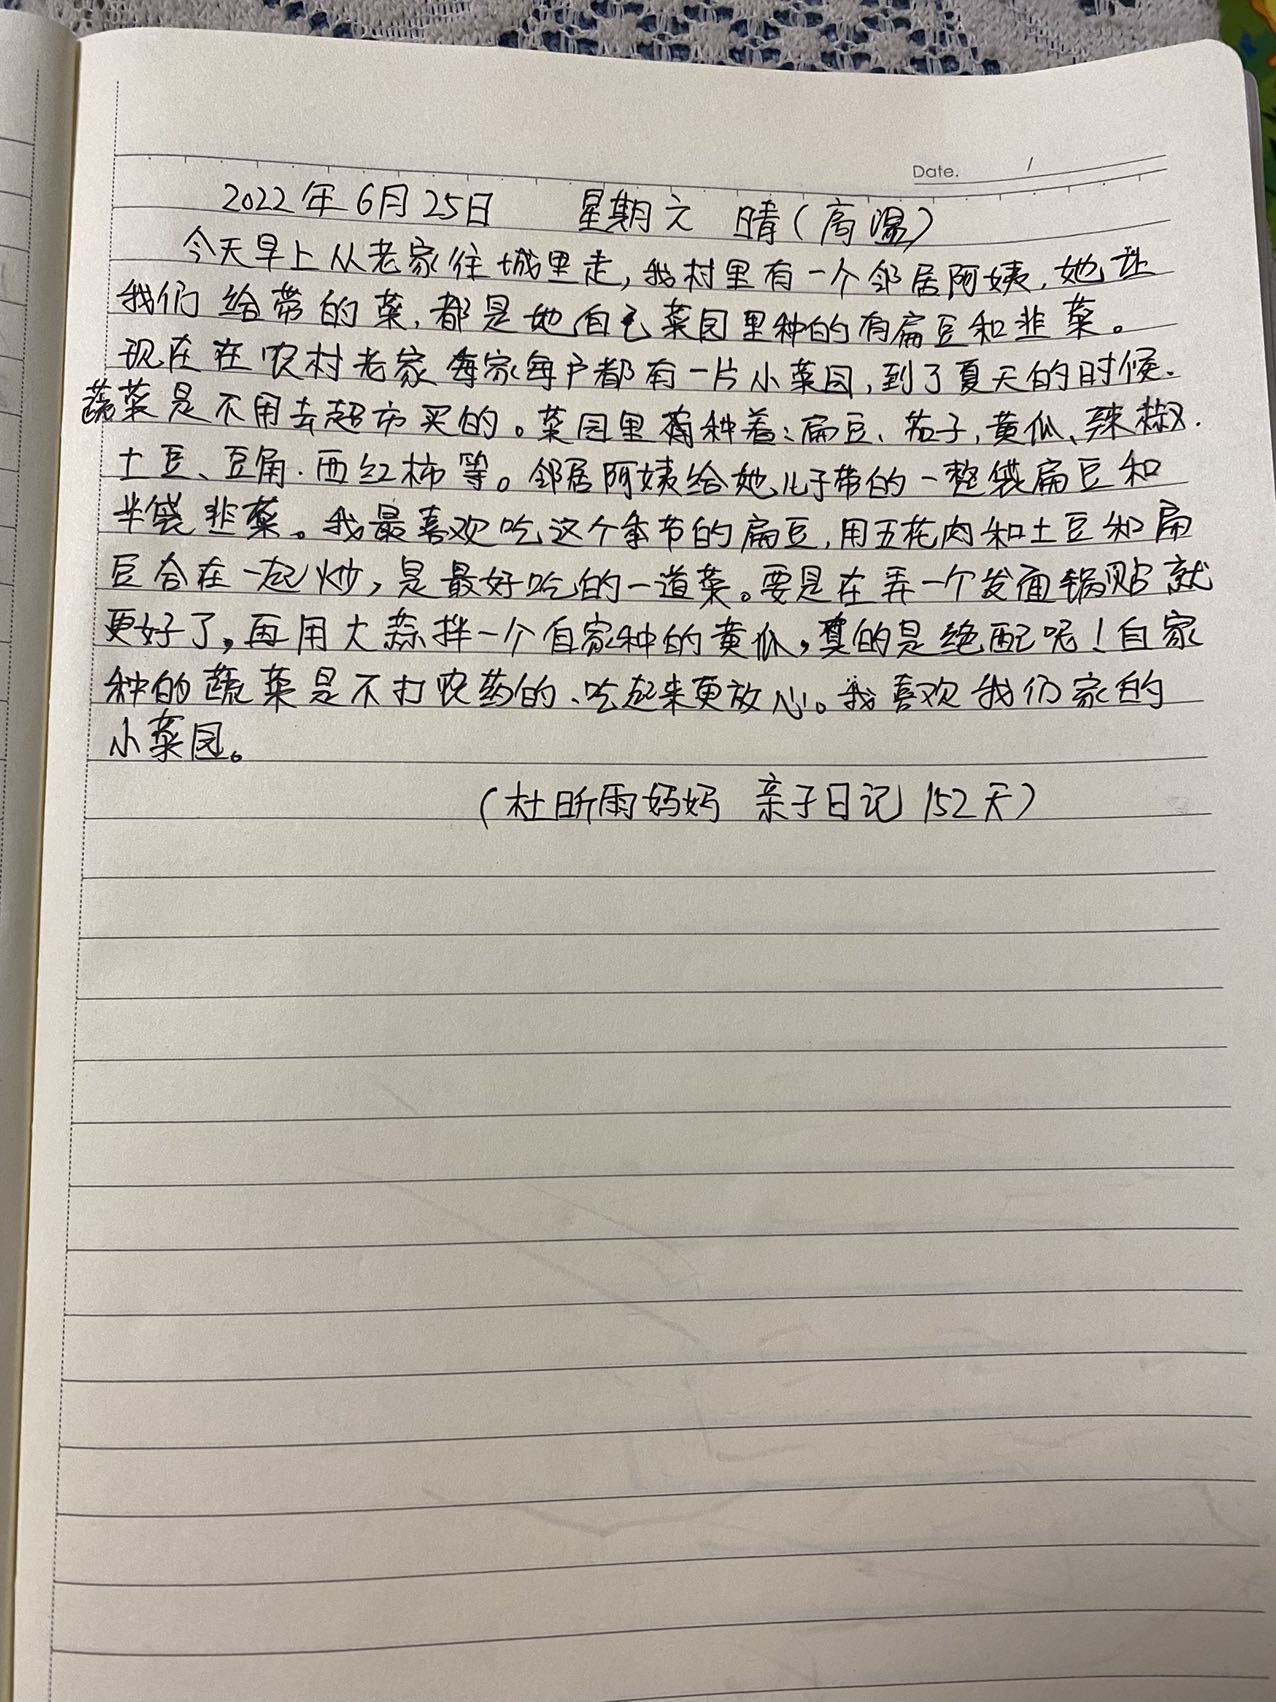 Date. /
2022年6月25日 星期六 晴(高温)
今天早上从老家往城里走,我村里有一个邻居阿姨,她让
我们给带的菜,都是她自己菜园里种的有扁豆和韭菜。
现在在农村老家每家每户都有一片小菜园,到了夏天的时候.
蔬菜是不用去超市买的。菜园里种着:扁豆、茄子,黄瓜、辣椒.
土豆、豆角.西红柿等。邻居阿姨给她儿子带的一整袋扁豆和
半袋韭菜。我最喜欢吃这个季节的扁豆,用五花肉和土豆和扁
豆合在一起炒,是最好吃的一道菜。要是在弄一个发面锅贴就
更好了,再用大蒜拌一个自家种的黄瓜,真的是绝配呢!自家
种的蔬菜是不打农药的、吃起来更放心。我喜欢我们家的
小菜园。
(杜昕雨妈妈 亲子日记 152天)